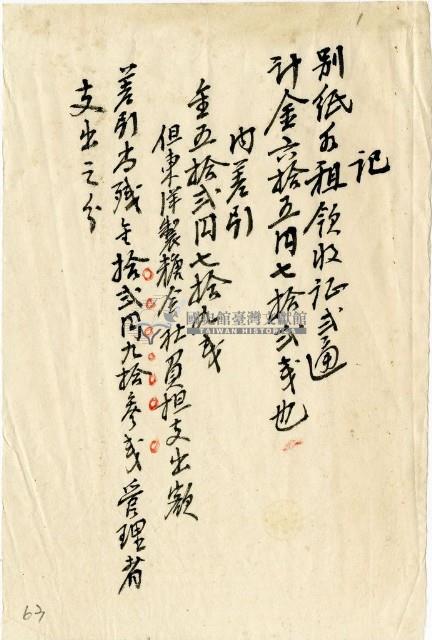 記
別紙水租領收証弍通
計金六拾五円七拾弍戔也
内差引
金五拾弍円七拾九戔
但東洋製糖会社負担支出額
差引尚殘金拾弍円九拾參戔管理者
支出之分
國史館臺灣文獻館
TAIWAN HISTORICA
63